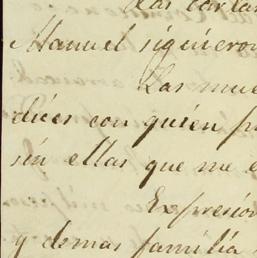 Las cartas
Manuel siguieron
Las mue
dices con quien p
sin ellas que me e
Expresion
y demas familia